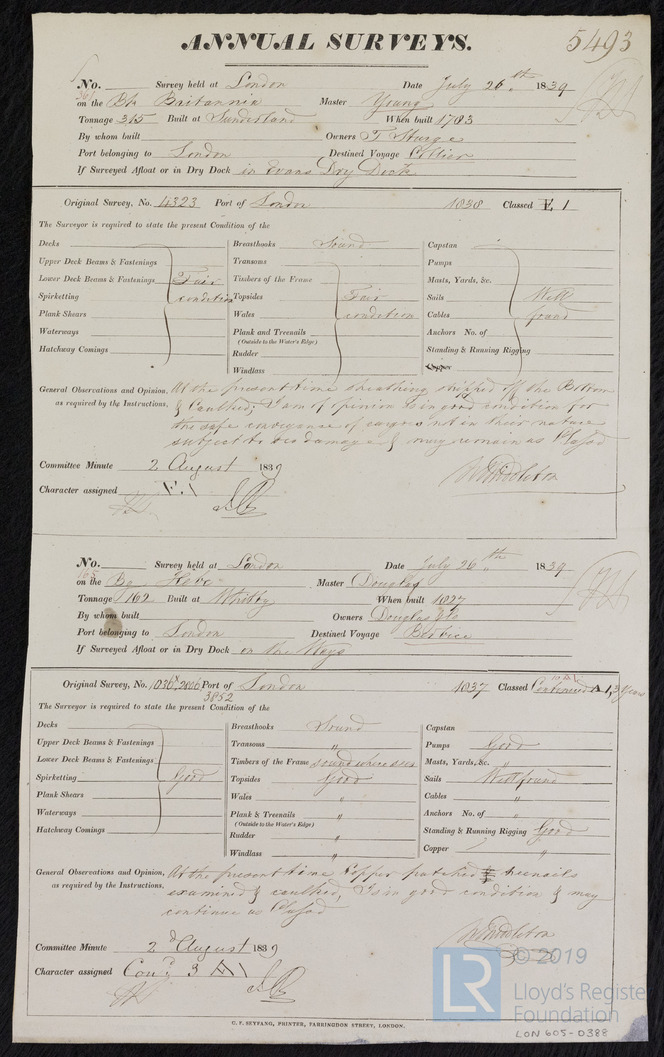 ANNUAL SURVEYS.
5493
No. Survey held at London Date July 26th 1839
on the Bk Britannia Master Young
Tonnage 315 Built at Sunderland When built 1783
By whom built Owners T. Sturge
Port belonging to London Destined Voyage Collier
If Surveyed Afloat or in Dry Dock in Evans Dry Dock
Original Survey, No. 4323 Port of London 1838 Classed E 1
The Surveyor is required to state the present Condition of the
Decks Breasthooks Sound Capstan
Upper Deck Beams & Fastenings Transoms Pumps
Lower Deck Beams & Fastenings Fair Timbers of the Frame Masts, Yards, &c.
Spirketting condition Topsides Fair Sails Well
Plank Shears Wales condition Cables found
Waterways Plank and Treenails Anchors No. of
(Outside to the Water's Edge)
Hatchway Comings Rudder Standing & Running Rigging
Windlass Copper
General Observations and Opinion, At the present time sheathing stripped off the Bottom
as required by the Instructions. & Caulked; I am of opinion is in good condition for
the safe conveyance of cargoes not in their nature
subject to sea damage & may remain as Classed
W Middleton
Committee Minute 2 August 1839
Character assigned E. 1
No. Survey held at London Date July 26th 1839
165
on the Bg Hebe Master Douglas
Tonnage 162 Built at Whitby When built 1827
By whom built Owners Douglas & Co
Port belonging to London Destined Voyage Berbice
If Surveyed Afloat or in Dry Dock on the Ways
Original Survey, No. 1036 2006 Port of London 1837 Classed Continued A 1 3 Years
3852
The Surveyor is required to state the present Condition of the
Decks Breasthooks Sound Capstan
Upper Deck Beams & Fastenings Transoms " Pumps Good
Lower Deck Beams & Fastenings Timbers of the Frame sound where seen Masts, Yards, &c. "
Spirketting Good Topsides Good Sails Well found
Plank Shears Wales " Cables "
Waterways Plank & Treenails " Anchors No. of "
(Outside to the Water's Edge)
Hatchway Comings Rudder " Standing & Running Rigging Good
Windlass " Copper "
General Observations and Opinion, At the present time Copper patched & treenails
as required by the Instructions. examined & caulked, Is in good condition & may
continue as Classed
W Middleton
Committee Minute 2d August 1839
Character assigned Cond 3 A1
C. F. SEYFANG, PRINTER, FARRINGDON STREET, LONDON.
LR © 2019
Lloyd's Register
Foundation
LON 605-0388